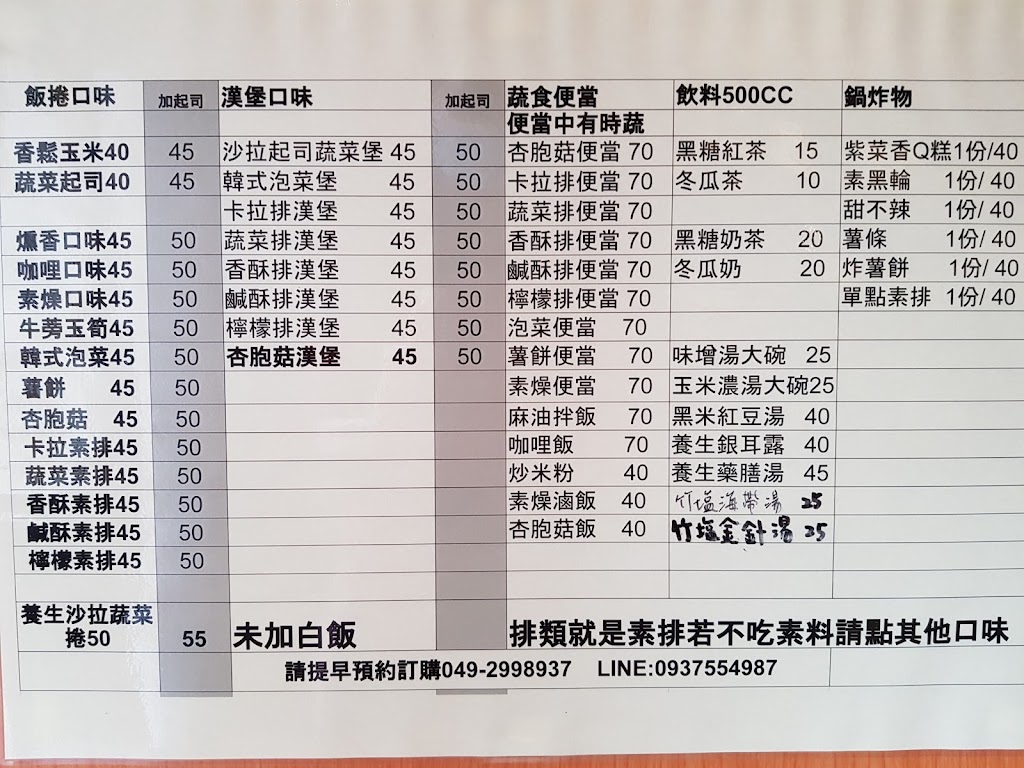 飯捲口味 加起司 漢堡口味 加起司 蔬食便當 飲料500CC 鍋炸物
便當中有時蔬
香鬆玉米40 45 沙拉起司蔬菜堡 45 50 杏胞菇便當 70 黑糖紅茶 15 紫菜香Q糕1份/40
蔬菜起司40 45 韓式泡菜堡 45 50 卡拉排便當 70 冬瓜茶 10 素黑輪 1份/ 40
卡拉排漢堡 45 50 蔬菜排便當 70 甜不辣 1份/ 40
燻香口味45 50 蔬菜排漢堡 45 50 香酥排便當 70 黑糖奶茶 20 薯條 1份/ 40
咖哩口味45 50 香酥排漢堡 45 50 鹹酥排便當 70 冬瓜奶 20 炸薯餅 1份/ 40
素燥口味45 50 鹹酥排漢堡 45 50 檸檬排便當 70 單點素排 1份/ 40
牛蒡玉筍45 50 檸檬排漢堡 45 50 泡菜便當 70
韓式泡菜45 50 杏胞菇漢堡 45 50 薯餅便當 70 味增湯大碗 25
薯餅 45 50 素燥便當 70 玉米濃湯大碗25
杏胞菇 45 50 麻油拌飯 70 黑米紅豆湯 40
卡拉素排45 50 咖哩飯 70 養生銀耳露 40
蔬菜素排45 50 炒米粉 40 養生藥膳湯 45
香酥素排45 50 素燥滷飯 40 竹塩海帶湯 25
鹹酥素排45 50 杏胞菇飯 40 竹塩金針湯 25
檸檬素排45 50
養生沙拉蔬菜
捲50 55 未加白飯 排類就是素排若不吃素料請點其他口味
請提早預約訂購049-2998937 LINE:0937554987